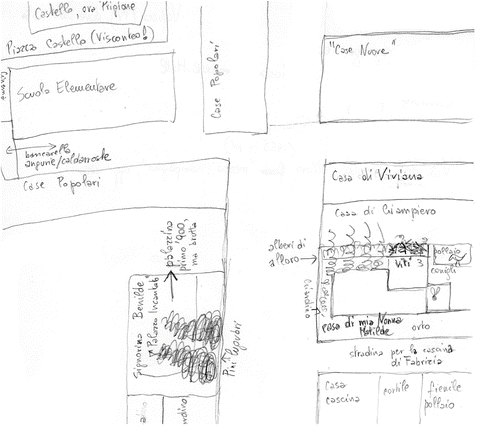 Castello, ora Prigione
Piazza Castello (Visconteo!)
Cinema
Scuola Elementare
Case Popolari
"Case Nuove"
bancarella
angurie/caldarroste
Case Popolari
palazzina
primo '900,
ma brutta
Signorina Benilde
"Palazzo Incantato"
Pini
Casa di Viviana
Casa di Giampiero
alberi di
alloro
Viti
pollaio
conigli
giardino
casa di mia Nonna
Matilde
orto
stradina per la cascina
di Fabrizia
Casa
cascina
cortile
fienile
pollaio